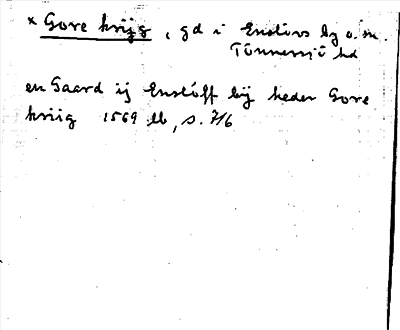 × Gore krijg, gd i Enslövs by o. sn.
Tönnersjö hd
en Gaard ij Enslöff bÿ heder Gore
kriig 1569 lb, s. 716